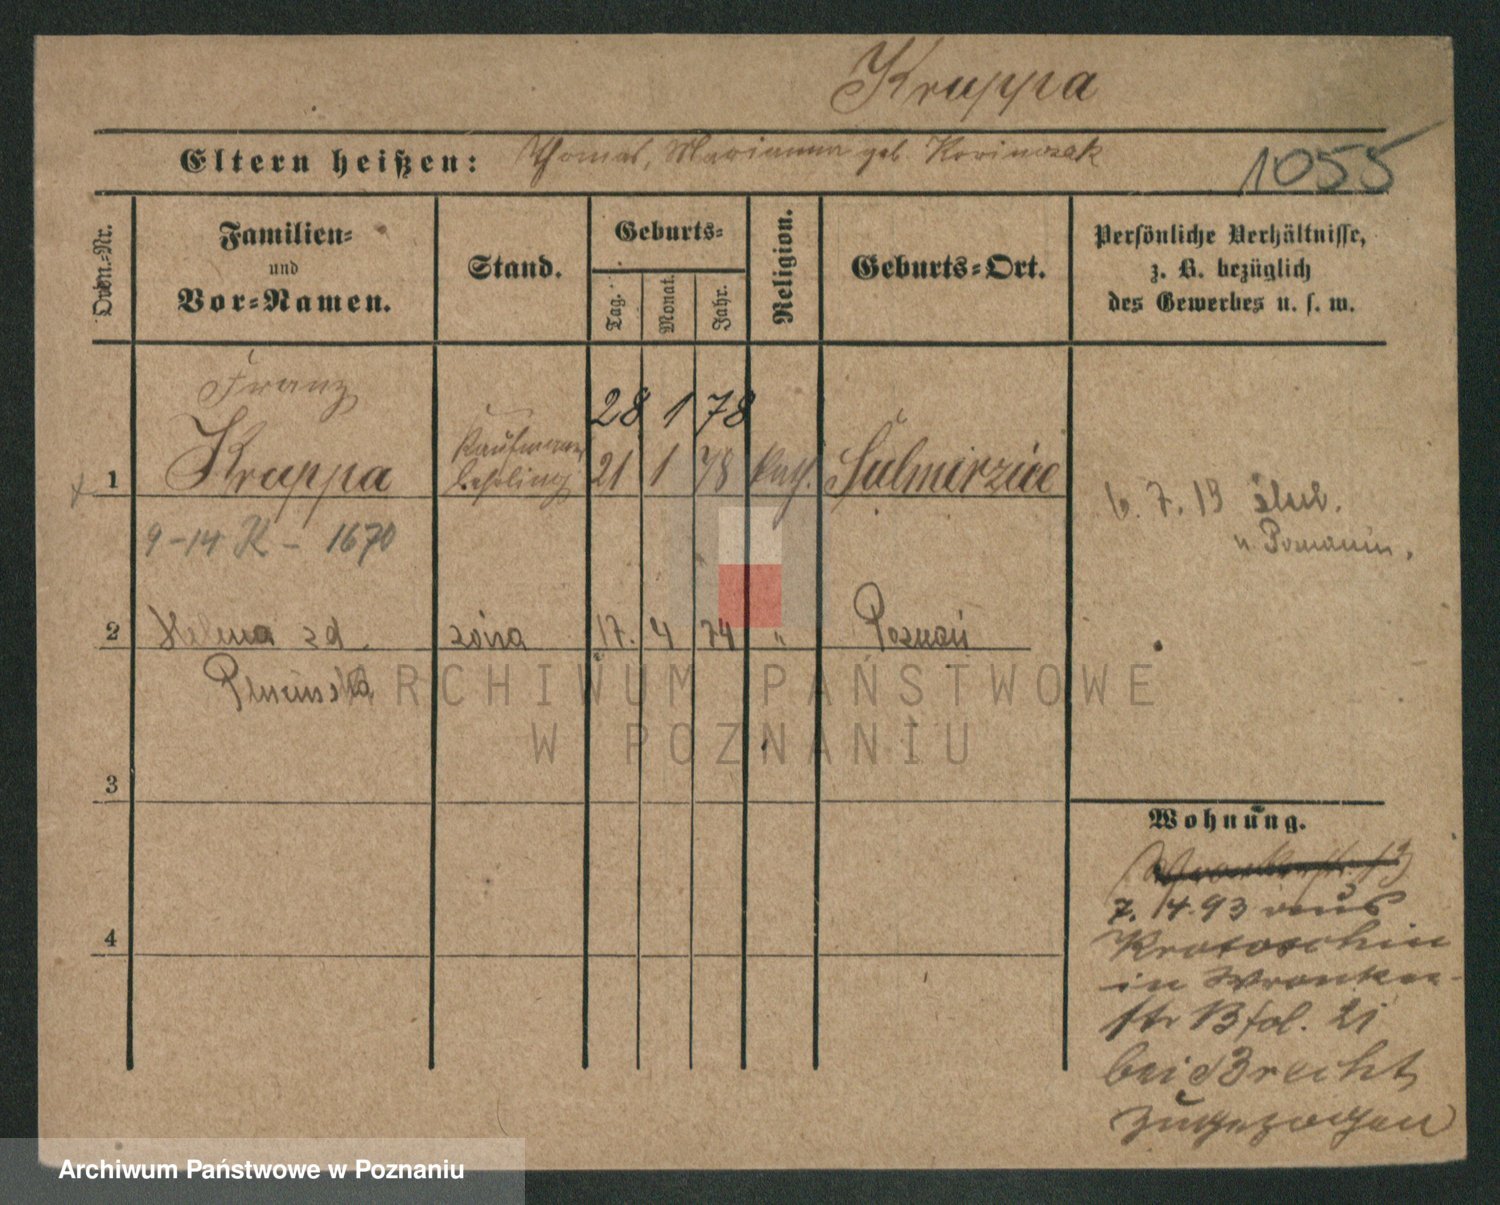 Kruppa
Eltern heißen: Thomas, Marianna geb.
1055
Ordn.-Nr.
Familien-
und
Vor-Namen.
Stand.
Geburts-
Tag.
Monat.
Jahr.
Religion.
Geburts-Ort.
Persönliche Verhältnisse,
z. B. bezüglich
des Gewerbes u. s. w.
Franz
28 1 78
Kaufmanns
1 Kruppa Lehrling 21 1 78 kath. Sulmirzice
9-14 K - 1670
6. 7. 13
2 Helena zd. żona 17. 4 74 " Poznań
3
4
Wohnung.
7. /4. 93 aus
Krotoschin
in Wronker-
str 13 fol. 21
bei Brecht
zugezogen
ARCHIWUM PAŃSTWOWE
W POZNANIU
Archiwum Państwowe w Poznaniu